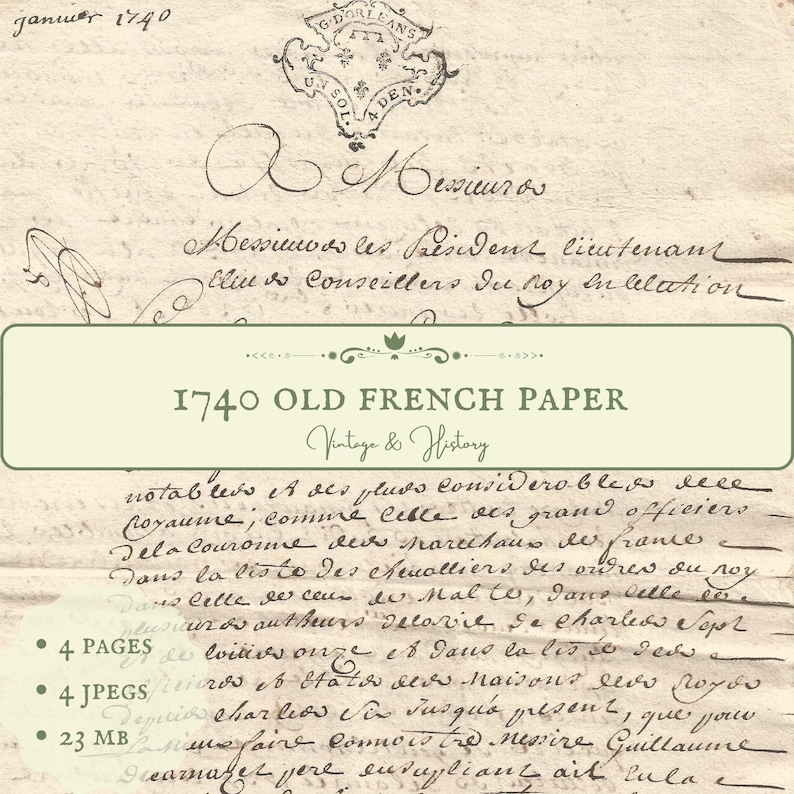 janvier 1740
G. D'ORLEANS
UN SOL. 4 DEN.
A Messieurs
Messieurs les President lieutenant
Eleus Conseillers Du Roy En lelection
1740 OLD FRENCH PAPER
Vintage & History
notables et des plus considerables de ce
Royaume; comme Celle des grand officiers
de la Couronne des Marechaux de france
Dans la liste des chevalliers des ordres du Roy
Dans Celle de ceux de Malte, dans Celle de
plusieurs autheurs de la vie de Charles Sept
et de Louis onze et dans la liste des
officiers et Etats des Maisons des Roys
depuis Charles Six Jusqu'a present, que pour
la mieux faire Connoistre Messire Guillaume
Decarnazet pere du supliant ait Eu la
• 4 PAGES
• 4 JPEGS
• 23 MB